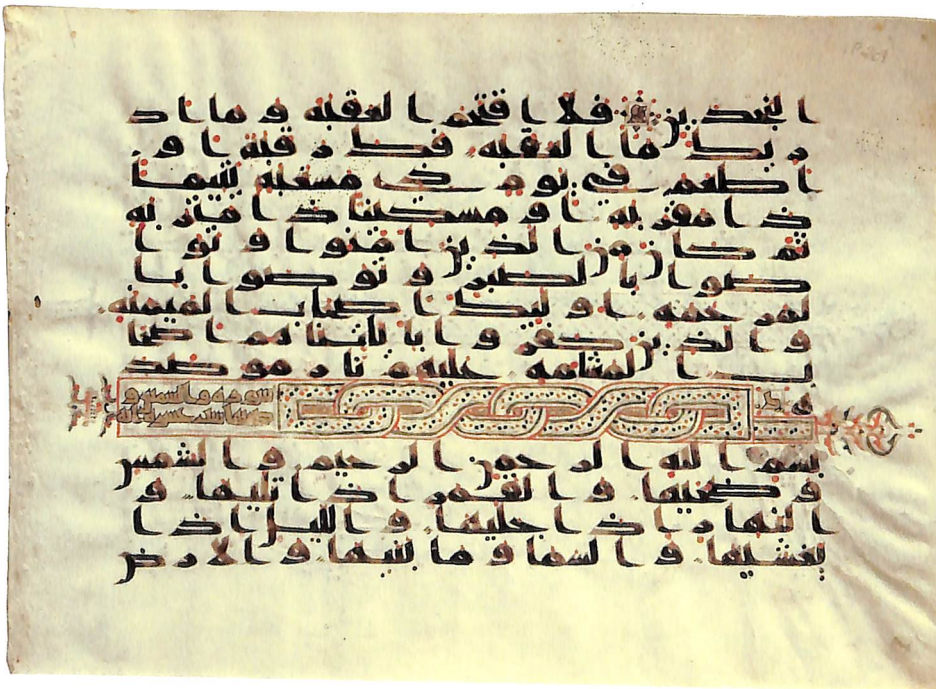 النجدين فلا اقتحم العقبه وما اد
ريك ما العقبه فك رقبه او
اطعم في يوم ذي مسغبه يتيما
ذا مقربه او مسكينا ذا متربه
ثم كان من الذين امنوا وتوا
صوا بالصبر وتوصوا با
لمرحمه اوليك اصحاب الميمنه
والذين كفروا بايتنا هم اصحا
ب المشامه عليهم نار موصد
ه
سوره والشمس و
بسم الله الرحمن الرحيم والشمس
وضحيها والقمر اذا تليها و
النهار اذا جليها والليل اذا
يغشيها والسما وما بنيها والارض